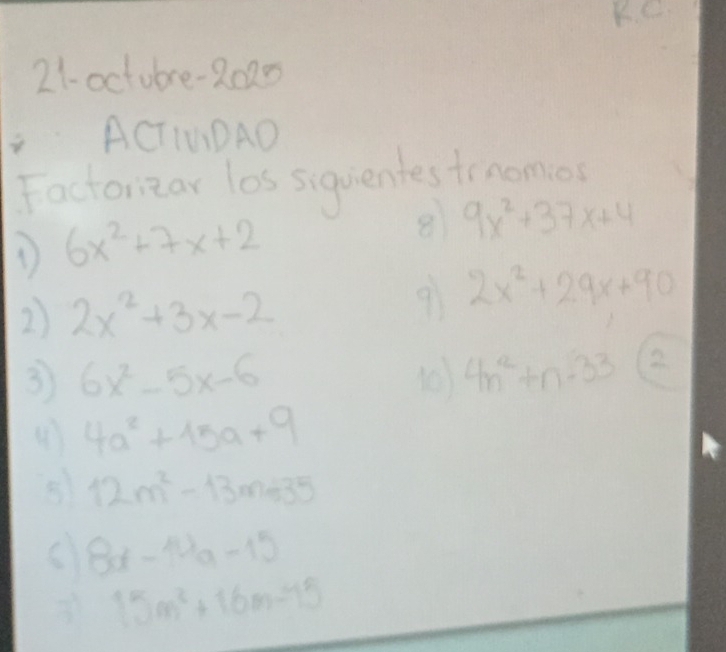 R.C.
21-octubre-2025
ACTIVIDAD
Factorizar los siguientes trinomios
1) 6x²+7x+2
2) 2x²+3x-2
3) 6x²-5x-6
4) 4a²+15a+9
5) 12m²-13m-35
6) 8a²-14a-15
7) 15m²+16m-15
8) 9x²+37x+4
9) 2x²+29x+90
10) 4n²+n-33 2